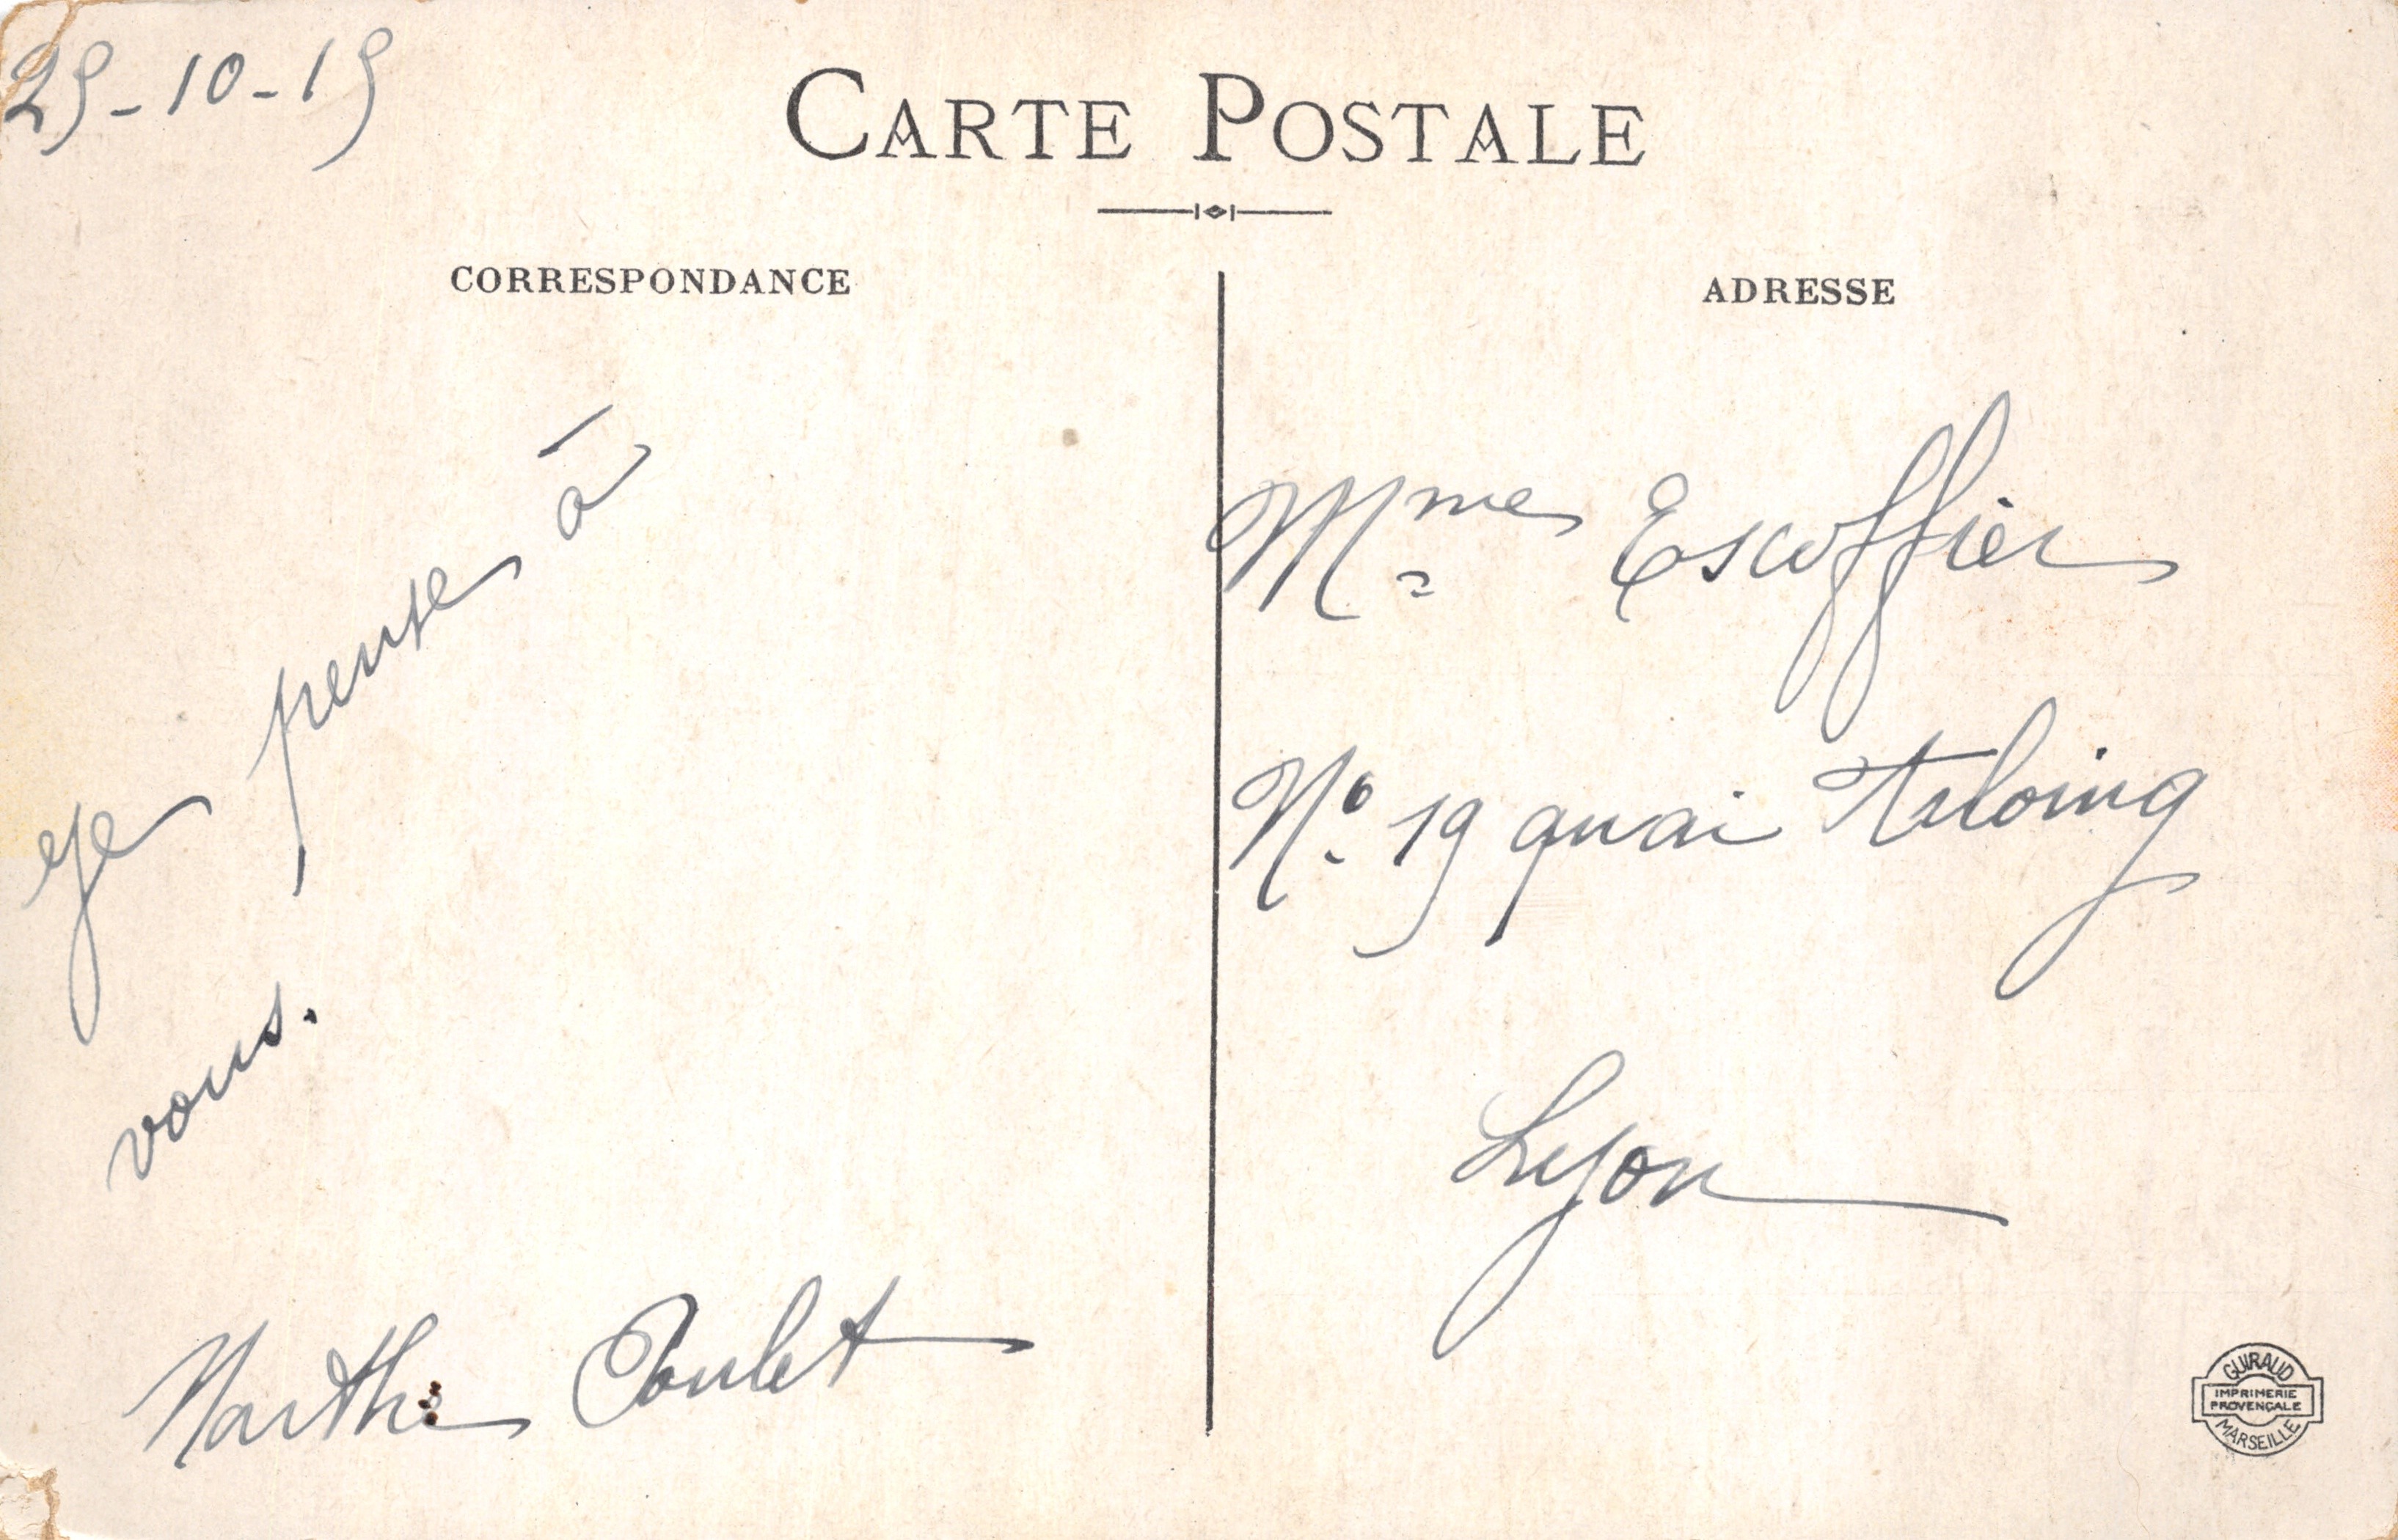 29-10-19
CARTE POSTALE
CORRESPONDANCE
ADRESSE
Je pense à
vous.
Marthe Coulet
Mme Escoffier
No 19 quai Arloing
Lyon
GUIRAUD
IMPRIMERIE
PROVENÇALE
MARSEILLE